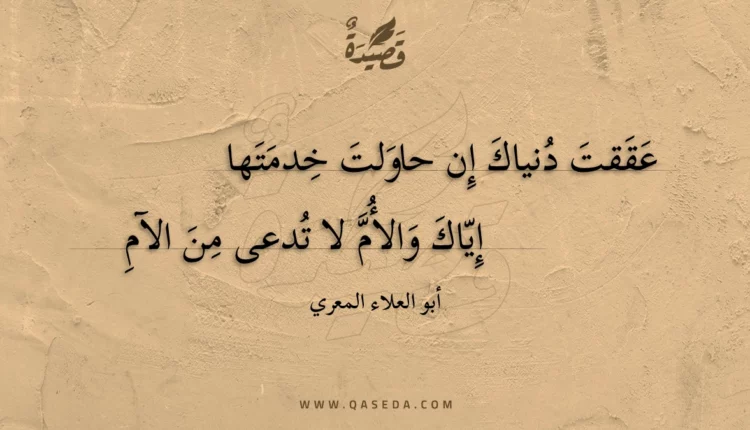 قَصِيْدَةٌ
عَقَقتَ دُنياكَ إِن حاوَلتَ خِدمَتَها
إِيّاكَ وَالأُمَّ لا تُدعى مِنَ الآمِ
أبو العلاء المعري
WWW.QASEDA.COM